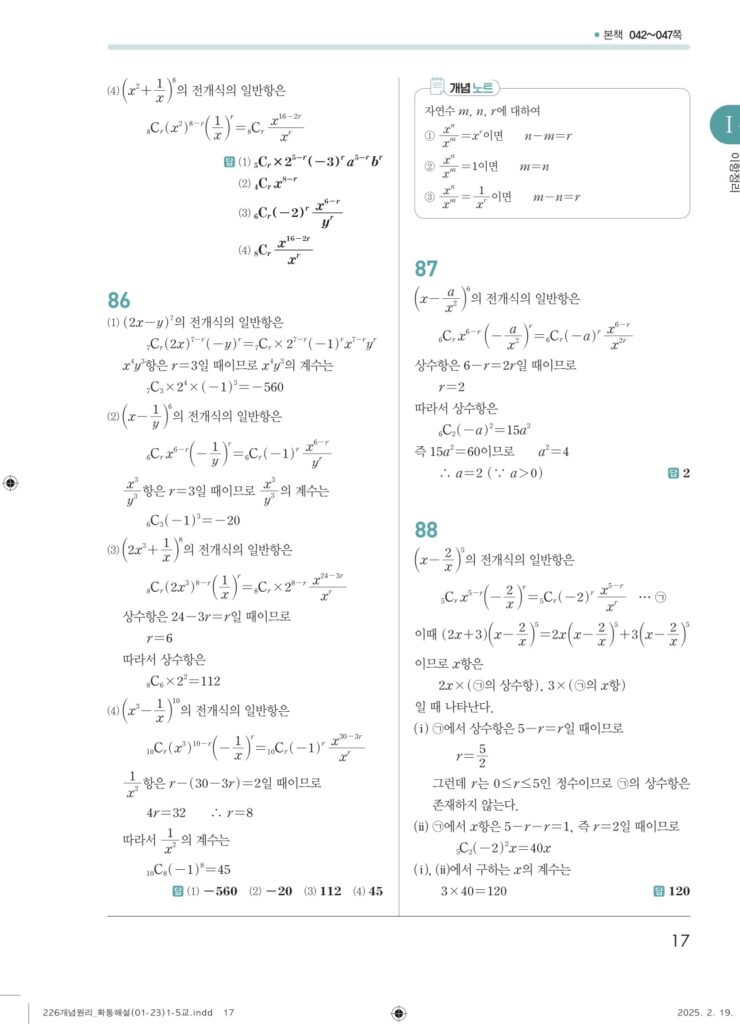 • 본책 042~047쪽
I
이항정리
(4) (x²+1/x)⁸의 전개식의 일반항은
₈Cᵣ(x²)⁸⁻ʳ(1/x)ʳ=₈Cᵣ x¹⁶⁻²ʳ/xʳ
답 (1) ₅Cᵣ×2⁵⁻ʳ(-3)ʳa⁵⁻ʳbʳ
(2) ₄Cᵣx⁸⁻ʳ
(3) ₆Cᵣ(-2)ʳ x⁶⁻ʳ/yʳ
(4) ₈Cᵣ x¹⁶⁻²ʳ/xʳ
86
(1) (2x-y)⁷의 전개식의 일반항은
₇Cᵣ(2x)⁷⁻ʳ(-y)ʳ=₇Cᵣ×2⁷⁻ʳ(-1)ʳx⁷⁻ʳyʳ
x⁴y³항은 r=3일 때이므로 x⁴y³의 계수는
₇C₃×2⁴×(-1)³=-560
(2) (x-1/y)⁶의 전개식의 일반항은
₆Cᵣx⁶⁻ʳ(-1/y)ʳ=₆Cᵣ(-1)ʳ x⁶⁻ʳ/yʳ
x³/y³항은 r=3일 때이므로 x³/y³의 계수는
₆C₃(-1)³=-20
(3) (2x³+1/x)⁸의 전개식의 일반항은
₈Cᵣ(2x³)⁸⁻ʳ(1/x)ʳ=₈Cᵣ×2⁸⁻ʳ x²⁴⁻³ʳ/xʳ
상수항은 24-3r=r일 때이므로
r=6
따라서 상수항은
₈C₆×2²=112
(4) (x³-1/x)¹⁰의 전개식의 일반항은
₁₀Cᵣ(x³)¹⁰⁻ʳ(-1/x)ʳ=₁₀Cᵣ(-1)ʳ x³⁰⁻³ʳ/xʳ
1/x²항은 r-(30-3r)=2일 때이므로
4r=32 ∴ r=8
따라서 1/x²의 계수는
₁₀C₈(-1)⁸=45
답 (1) -560 (2) -20 (3) 112 (4) 45
개념 노트
자연수 m, n, r에 대하여
① xⁿ/xᵐ=xʳ이면 n-m=r
② xⁿ/xᵐ=1이면 m=n
③ xⁿ/xᵐ=1/xʳ이면 m-n=r
87
(x-a/x²)⁶의 전개식의 일반항은
₆Cᵣx⁶⁻ʳ(-a/x²)ʳ=₆Cᵣ(-a)ʳ x⁶⁻ʳ/x²ʳ
상수항은 6-r=2r일 때이므로
r=2
따라서 상수항은
₆C₂(-a)²=15a²
즉 15a²=60이므로 a²=4
∴ a=2 (∵ a>0) 답 2
88
(x-2/x)⁵의 전개식의 일반항은
₅Cᵣx⁵⁻ʳ(-2/x)ʳ=₅Cᵣ(-2)ʳ x⁵⁻ʳ/xʳ … ㉠
이때 (2x+3)(x-2/x)⁵=2x(x-2/x)⁵+3(x-2/x)⁵
이므로 x항은
2x×(㉠의 상수항), 3×(㉠의 x항)
일 때 나타난다.
(ⅰ) ㉠에서 상수항은 5-r=r일 때이므로
r=5/2
그런데 r는 0≤r≤5인 정수이므로 ㉠의 상수항은
존재하지 않는다.
(ⅱ) ㉠에서 x항은 5-r-r=1, 즉 r=2일 때이므로
₅C₂(-2)²x=40x
(ⅰ), (ⅱ)에서 구하는 x의 계수는
3×40=120 답 120
17
226개념원리_확통해설(01-23)1-5교.indd 17
2025. 2. 19.